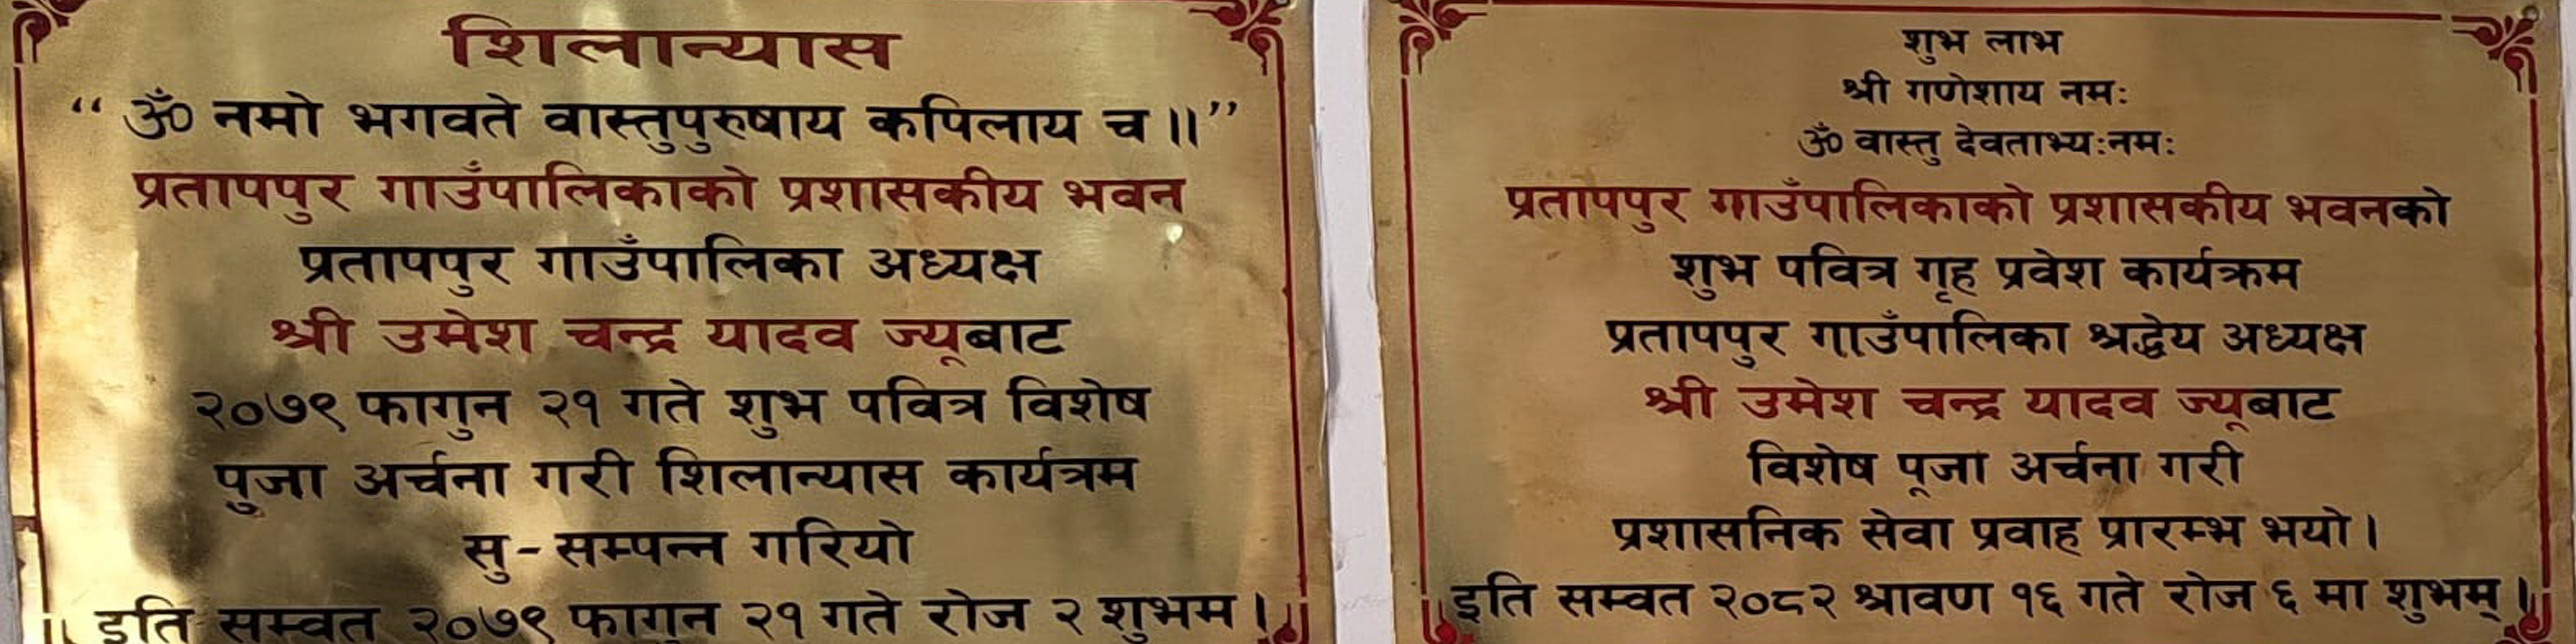 शिलान्यास
“ ॐ नमो भगवते वास्तुपुरुषाय कपिलाय च ॥”
प्रतापपुर गाउँपालिकाको प्रशासकीय भवन
प्रतापपुर गाउँपालिका अध्यक्ष
श्री उमेश चन्द्र यादव ज्यूबाट
२०७९ फागुन २१ गते शुभ पवित्र विशेष
पुजा अर्चना गरी शिलान्यास कार्यत्रम
सु-सम्पन्न गरियो
॥ इति सम्वत २०७९ फागुन २१ गते रोज २ शुभम ।
शुभ लाभ
श्री गणेशाय नमः
ॐ वास्तु देवताभ्यःनमः
प्रतापपुर गाउँपालिकाको प्रशासकीय भवनको
शुभ पवित्र गृह प्रवेश कार्यक्रम
प्रतापपुर गाउँपालिका श्रद्धेय अध्यक्ष
श्री उमेश चन्द्र यादव ज्यूबाट
विशेष पूजा अर्चना गरी
प्रशासनिक सेवा प्रवाह प्रारम्भ भयो ।
॥इति सम्वत २०८२ श्रावण १६ गते रोज ६ मा शुभम् ॥